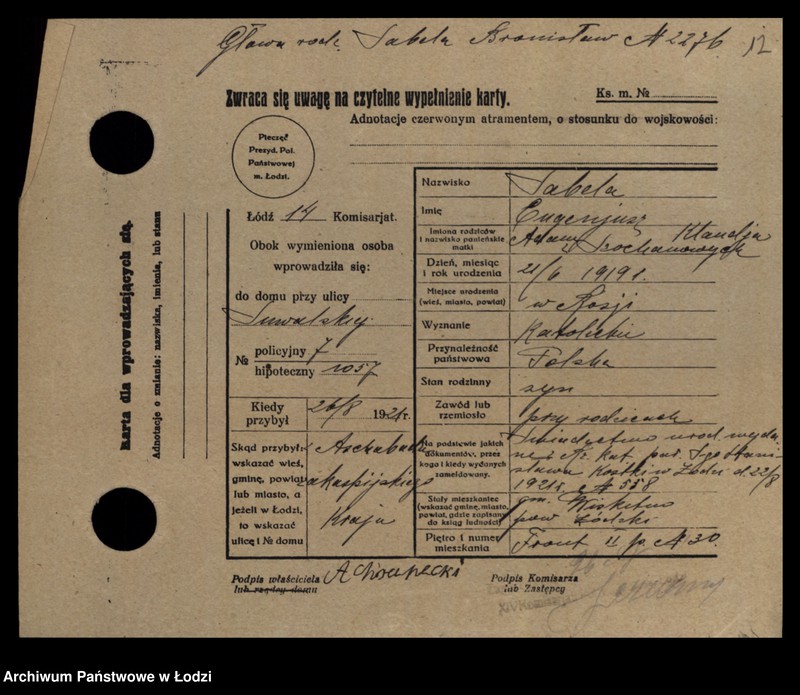 Głowa rodz. Sabela Bronisław № 2276
12
Zwraca się uwagę na czytelne wypełnienie karty.
Ks. m. №
Adnotacje czerwonym atramentem, o stosunku do wojskowości:
Pieczęć
Prezyd. Pol.
Państwowej
m. Łodzi.
Karta dla wprowadzających się.
Adnotacje o zmianie: nazwiska, imienia, lub stanu
Łódź 14 Komisarjat.
Obok wymieniona osoba
wprowadziła się:
do domu przy ulicy
Suwalskiej
№ policyjny 7
hipoteczny 1057
Kiedy przybył 26/8 1921 r.
Skąd przybył:
wskazać wieś,
gminę, powiat
lub miasto, a
jeżeli w Łodzi,
to wskazać
ulicę i № domu
Aschabad
zakaspijskiego
Kraju
Nazwisko Sabela
Imię Eugenjusz
Imiona rodziców
i nazwisko panieńskie
matki
Adam Klaudja
Dzień, miesiąc
i rok urodzenia
21/6 1919 r.
Miejsce urodzenia
(wieś, miasto, powiat)
w Rosji
Wyznanie Katolickie
Przynależność
państwowa
Polska
Stan rodzinny syn
Zawód lub
rzemiosło
przy rodzicach
Na podstawie jakich
dokumentów, przez
kogo i kiedy wydanych
zameldowany.
Świadectwo urodz. wyda-
ne Rz. Kat. par. Sgo Stani-
sława Kostki w Łodzi d. 22/8
1921 r. № 558
Stały mieszkaniec
(wskazać gminę, miasto,
powiat, gdzie zapisany
do ksiąg ludności)
gm. Wiskitno
pow. Łódzki
Piętro i numer
mieszkania
Front II p. № 30.
Podpis właściciela
lub rządcy domu
Podpis Komisarza
lub Zastępcy
Archiwum Państwowe w Łodzi